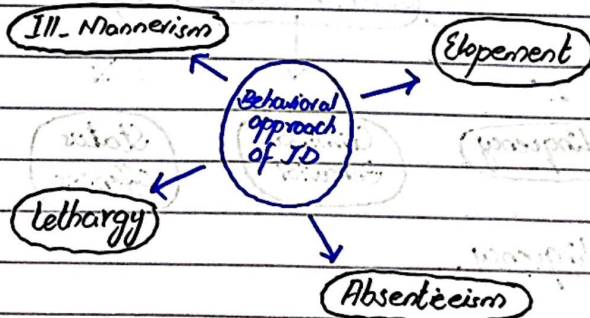 Ill-Mannerism
Elopement
Behavioral
approach
of JD
Lethargy
Absenteeism